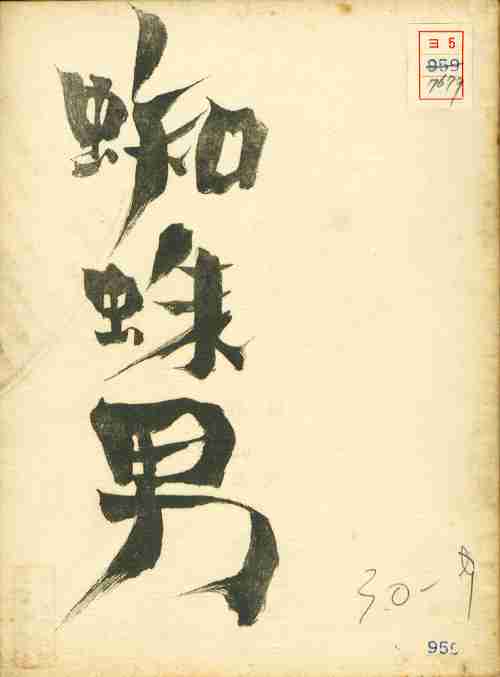 蜘蛛男
ヨ5
959
7677
30-9
959